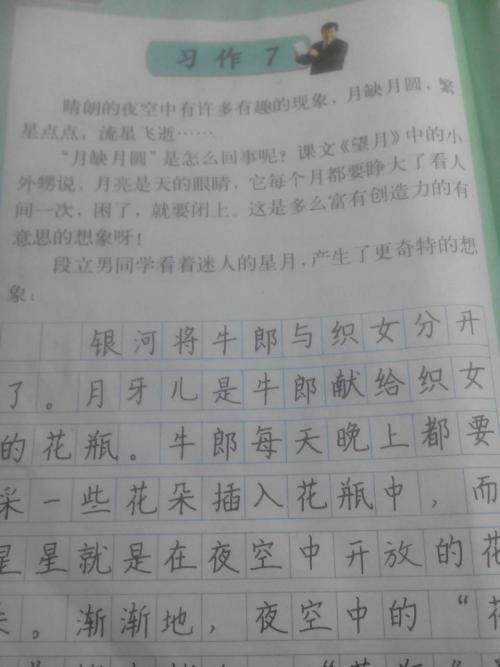 习作7
晴朗的夜空中有许多有趣的现象，月缺月圆，繁
星点点，流星飞逝……
“月缺月圆”是怎么回事呢？课文《望月》中的小
外甥说，月亮是天的眼睛，它每个月都要睁大了看人
间一次，困了，就要闭上。这是多么富有创造力的有
意思的想象呀！
段立男同学看着迷人的星月，产生了更奇特的想
象：
银河将牛郎与织女分开
了。月牙儿是牛郎献给织女
的花瓶。牛郎每天晚上都要
采一些花朵插入花瓶中，而
星星就是在夜空中开放的花
。渐渐地，夜空中的“花